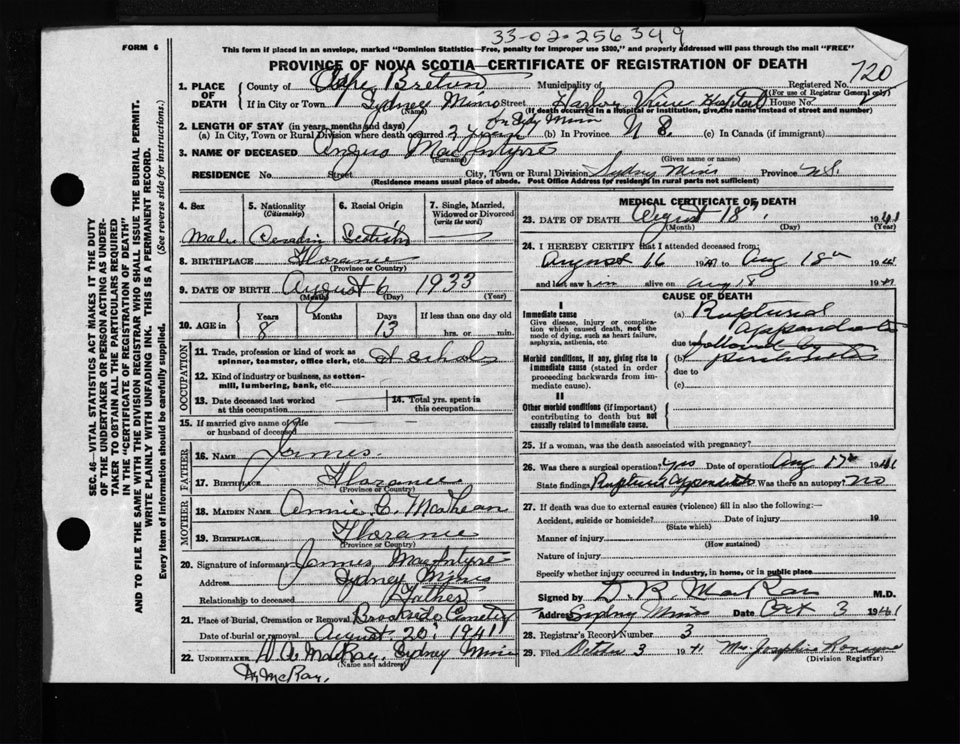 33-02-256349
FORM 6
This form if placed in an envelope, marked "Dominion Statistics—Free, penalty for improper use $300," and properly addressed will pass through the mail "FREE"
PROVINCE OF NOVA SCOTIA—CERTIFICATE OF REGISTRATION OF DEATH
720
1. PLACE OF DEATH County of Cape Breton Municipality of Registered No.
(For use of Registrar General only)
If in City or Town Sydney Mines Street Harbor View Hospital House No.
(Name) (If death occurred in a hospital or institution, give the name instead of street and number)
2. LENGTH OF STAY (in years, months and days)
(a) In City, Town or Rural Division where death occurred (b) In Province (c) In Canada (if immigrant)
3. NAME OF DECEASED Angus MacIntyre
(Surname) (Given name or names)
RESIDENCE No. Street City, Town or Rural Division Sydney Mines Province N.S.
(Residence means usual place of abode. Post Office Address for residents in rural parts not sufficient)
4. Sex 5. Nationality (Citizenship) 6. Racial Origin 7. Single, Married, Widowed or Divorced (write the word)
Male
8. BIRTHPLACE Florance
(Province or Country)
9. DATE OF BIRTH August 6 1933
(Month) (Day) (Year)
10. AGE in Years Months Days If less than one day old
8 13 hrs. or min.
OCCUPATION
11. Trade, profession or kind of work as spinner, teamster, office clerk, etc. At School
12. Kind of industry or business, as cotton-mill, lumbering, bank, etc.
13. Date deceased last worked at this occupation
14. Total yrs. spent in this occupation
15. If married give name of wife or husband of deceased
FATHER
16. NAME James
17. Birthplace Florance
(Province or Country)
MOTHER
18. MAIDEN NAME Annie C. McLean
19. BIRTHPLACE Florance
(Province or Country)
20. Signature of informant James MacIntyre
Address Sydney Mines
Relationship to deceased Father
21. Place of Burial, Cremation or Removal Brookside Cemetery
Date of burial or removal August 20, 1941
22. UNDERTAKER Sydney Mines
(Name and address)
MEDICAL CERTIFICATE OF DEATH
23. DATE OF DEATH August 18th 1941
(Month) (Day) (Year)
24. I HEREBY CERTIFY that I attended deceased from:
August 16 1941 to Aug 18th 1941
and last saw him alive on Aug 18 1941
CAUSE OF DEATH
I
Immediate cause
Give disease, injury or complication which caused death, not the mode of dying, such as heart failure, asphyxia, asthenia, etc.
(a) Ruptured appendicitis
due to followed by
Morbid conditions, if any, giving rise to immediate cause (stated in order proceeding backwards from immediate cause).
(b) peritonitis
due to
(c)
II
Other morbid conditions (if important) contributing to death but not causally related to immediate cause.
25. If a woman, was the death associated with pregnancy?
26. Was there a surgical operation? yes Date of operation Aug 17th 1941
State findings Ruptured Appendicitis Was there an autopsy? no
27. If death was due to external causes (violence) fill in also the following:—
Accident, suicide or homicide? Date of injury 19
(State which)
Manner of injury
(How sustained)
Nature of injury
Specify whether injury occurred in industry, in home, or in public place
Signed by D. R. MacRae M.D.
Address Sydney Mines Date Oct 3 1941
28. Registrar's Record Number 3
29. Filed October 3 1941 Mrs Josephine
(Division Registrar)
SEC. 46—VITAL STATISTICS ACT MAKES IT THE DUTY
OF THE UNDERTAKER OR PERSON ACTING AS UNDERTAKER TO OBTAIN ALL THE PARTICULARS REQUIRED
IN THE "CERTIFICATE OF REGISTRATION OF DEATH"
AND TO FILE THE SAME WITH THE DIVISION REGISTRAR WHO SHALL ISSUE THE BURIAL PERMIT.
WRITE PLAINLY WITH UNFADING INK. THIS IS A PERMANENT RECORD.
Every item of information should be carefully supplied.
(See reverse side for instructions.)